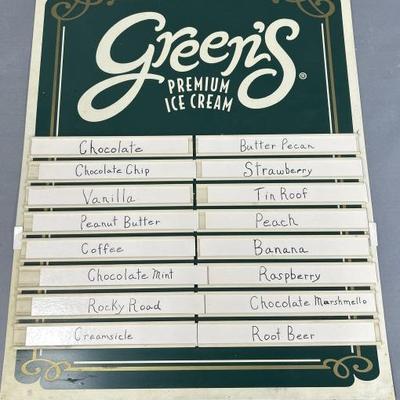 Green's®
PREMIUM
ICE CREAM
Chocolate
Butter Pecan
Chocolate Chip
Strawberry
Vanilla
Tin Roof
Peanut Butter
Peach
Coffee
Banana
Chocolate Mint
Raspberry
Rocky Road
Chocolate Marshmello
Creamsicle
Root Beer